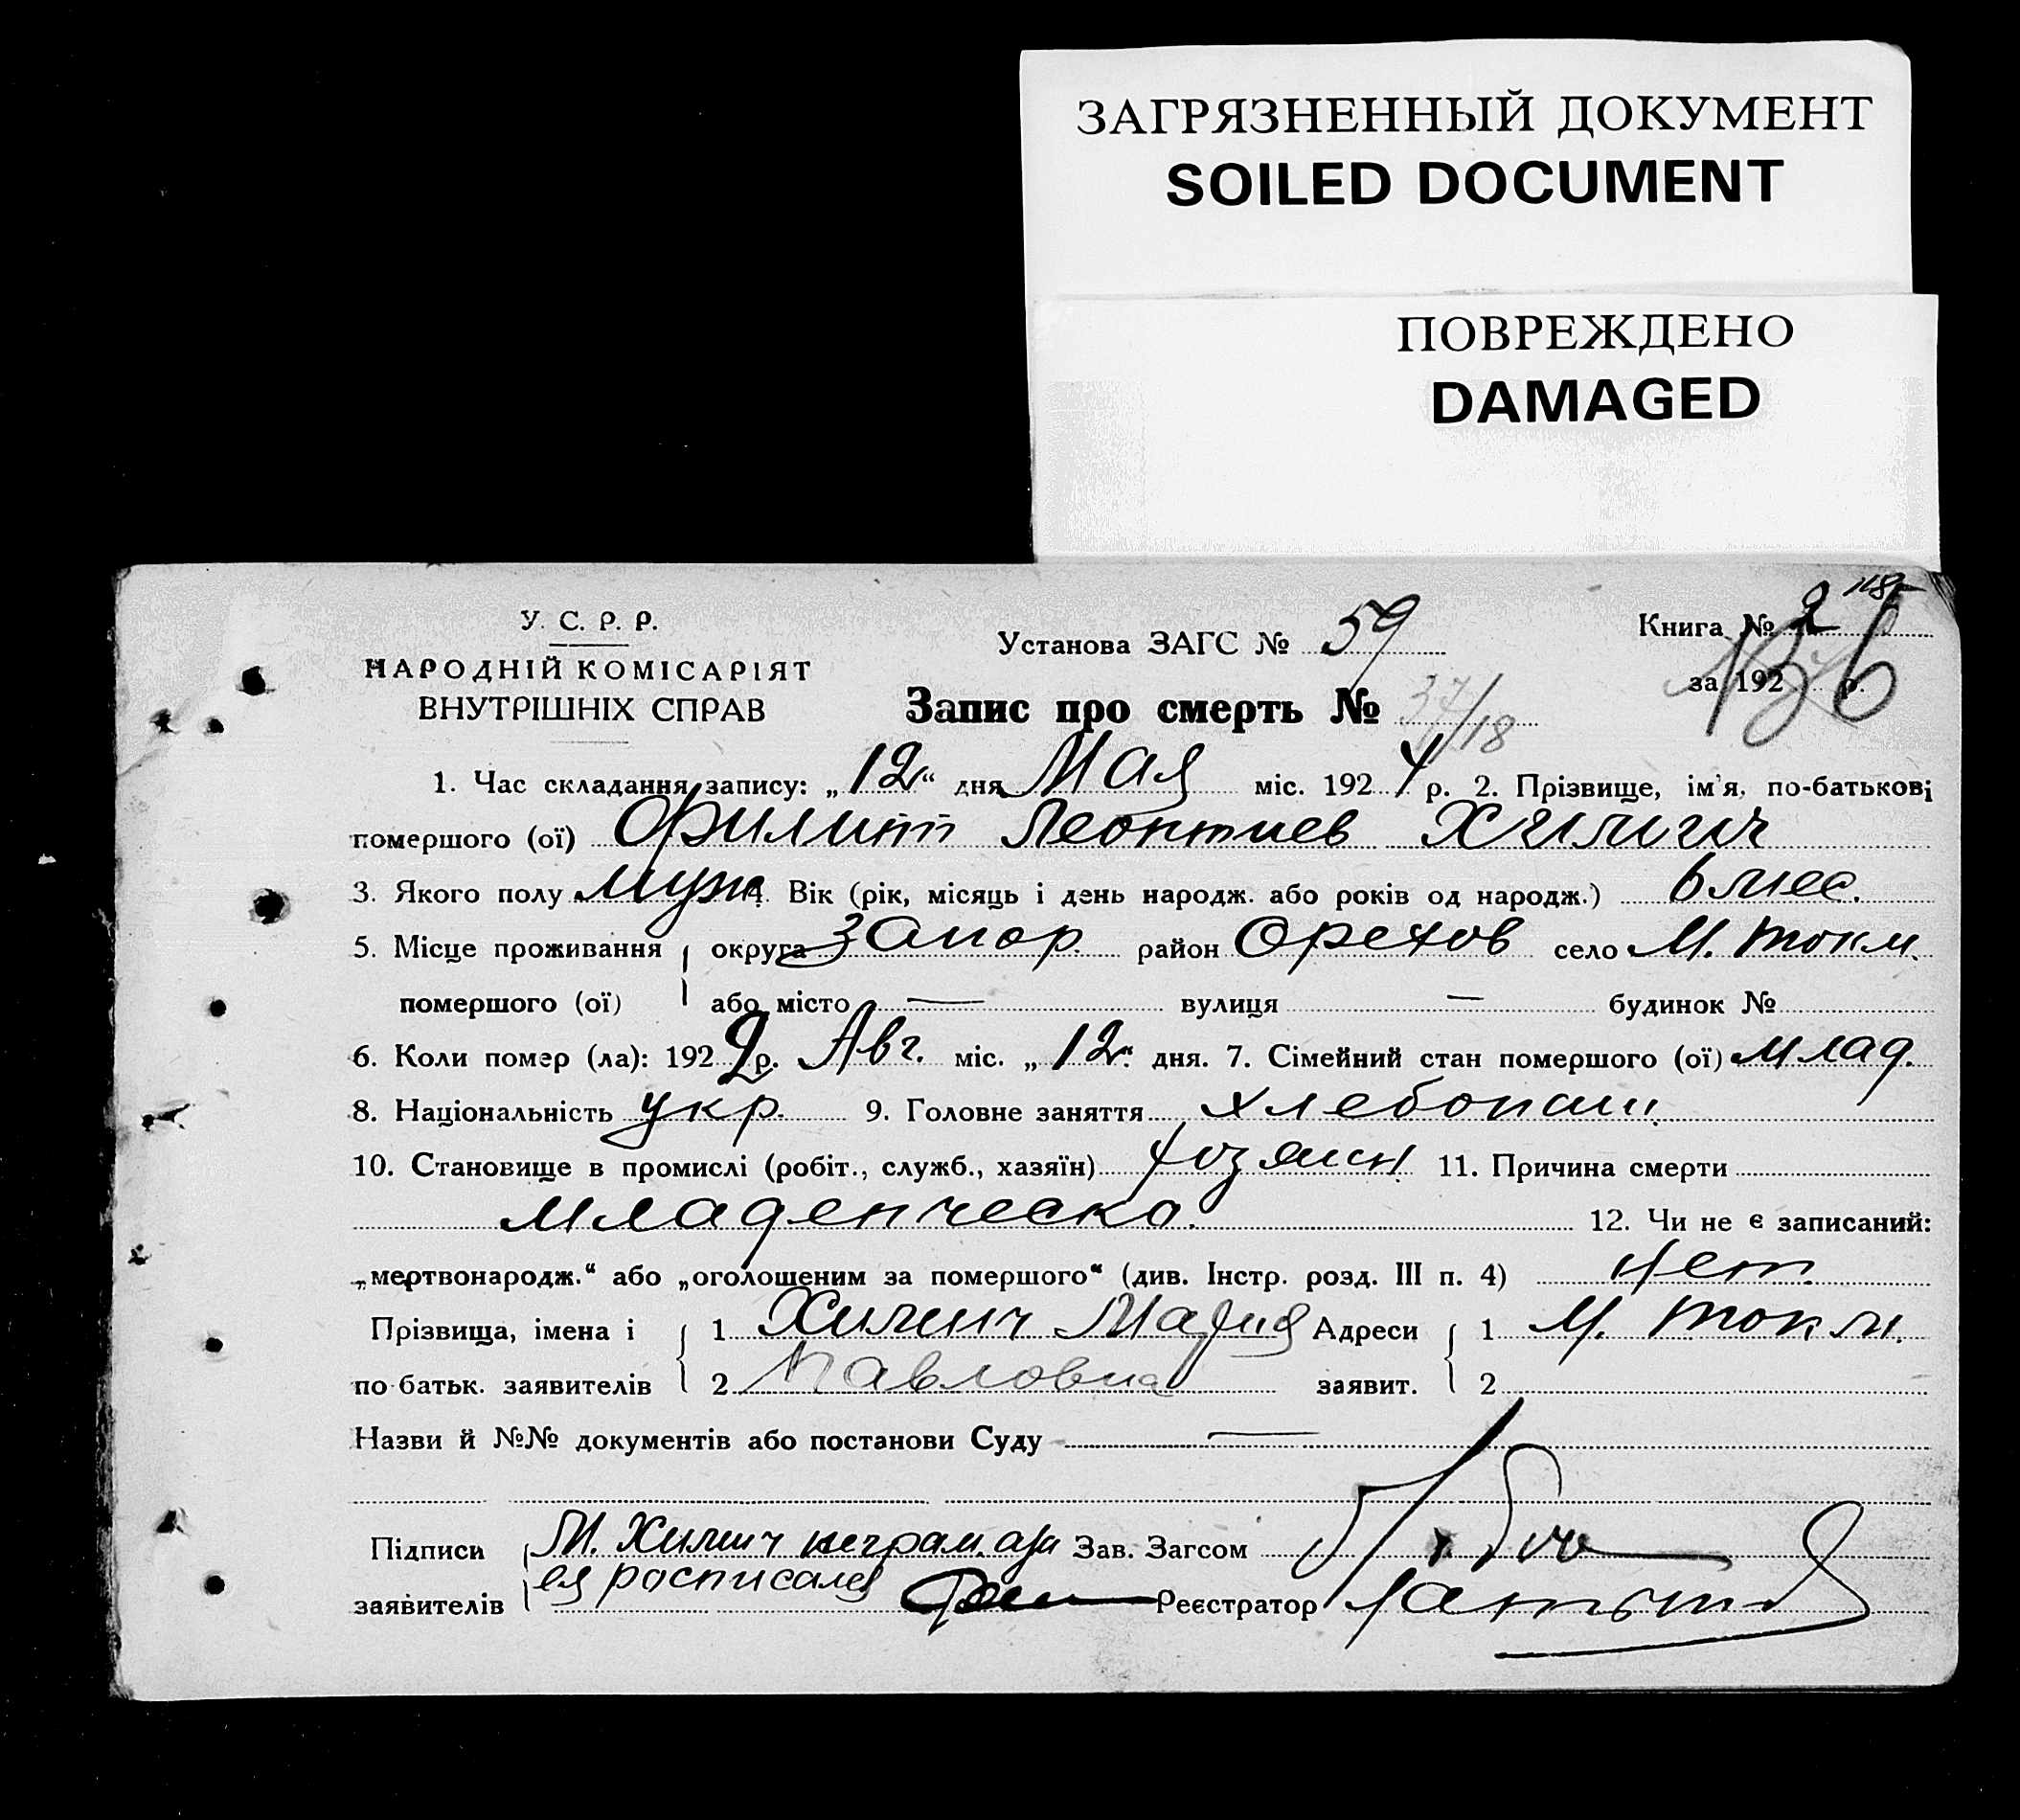 ЗАГРЯЗНЕННЫЙ ДОКУМЕНТ
SOILED DOCUMENT
ПОВРЕЖДЕНО
DAMAGED
У. С. Р. Р.
НАРОДНІЙ КОМІСАРІЯТ
ВНУТРІШНІХ СПРАВ
Установа ЗАГС № 59
Запис про смерть № 37/18
Книга № 2
за 192 р.
136
1. Час складання запису: „12“ дня Мая міс. 1924 р. 2. Прізвище, ім'я, по-батькові
помершого (ої) Филипп Леонтиев
3. Якого полу муж 4. Вік (рік, місяць і день народж. або років од народж.) 6 мес.
5. Місце проживання округа Запор. район Орехов село М. Токм.
помершого (ої) або місто — вулиця — будинок №
6. Коли помер (ла): 1922 р. Авг. міс. „12“ дня. 7. Сімейний стан помершого (ої) млад.
8. Національність укр. 9. Головне заняття хлебопаш.
10. Становище в промислі (робіт., служб., хазяїн) хозяин 11. Причина смерти
младенческо. 12. Чи не є записаний:
„мертвонародж.“ або „оголошеним за помершого“ (див. Інстр. розд. III п. 4) нет.
Прізвища, імена і 1 Хилич Мария Адреси 1 М. Токм.
по батьк. заявителів 2 Павловна заявит. 2
Назви й №№ документів або постанови Суду —
Підписи М. Хилич неграм. а за Зав. Загсом
заявителів ея росписался Реєстратор